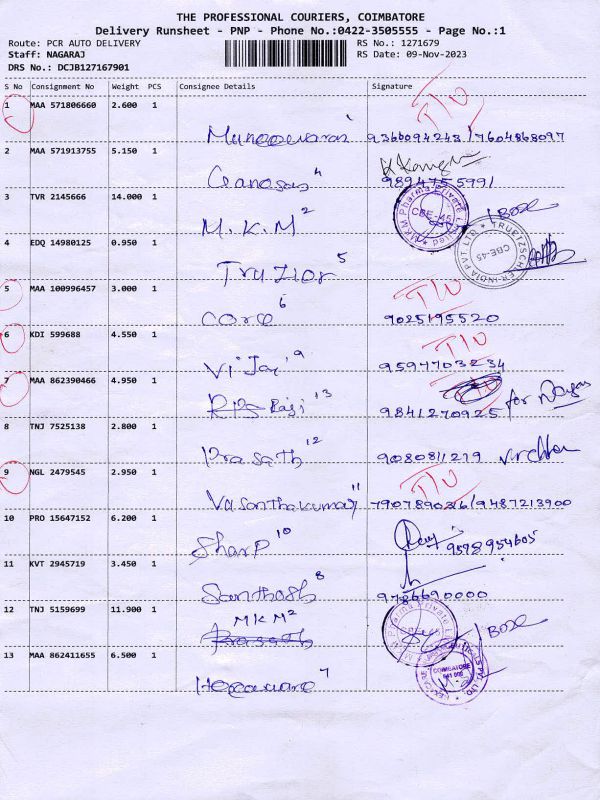 THE PROFESSIONAL COURIERS, COIMBATORE
Delivery Runsheet - PNP - Phone No.:0422-3505555 - Page No.:1
Route: PCR AUTO DELIVERY RS No.: 1271679
Staff: NAGARAJ RS Date: 09-Nov-2023
DRS No.: DCJB127167901
S No Consignment No Weight PCS Consignee Details Signature
1 MAA 571806660 2.600 1 T/U
1 9360094243/7604868097
2 MAA 571913755 5.150 1
Ganesan 4 9894755991
3 TVR 2145666 14.000 1
M.K.M 2 CBE-45 BOSE
4 EDQ 14980125 0.950 1 CBE-45
5
5 MAA 100996457 3.000 1 T/U
6 9025195520
6 KDI 599688 4.550 1 T/U
Vijay 9 9597703234
7 MAA 862390466 4.950 1 T/U
13 9841270925 for
8 TNJ 7525138 2.800 1
Prasath 12 9080811219
9 NGL 2479545 2.950 1 T/U
Vasanthakumar 11 7907890316/9487213900
10 PRO 15647152 6.200 1
Sharp 10 9578954605
11 KVT 2945719 3.450 1
Santhosh 8 9786690000
12 TNJ 5159699 11.900 1
MKM 2 BOSE
13 MAA 862411655 6.500 1 COIMBATORE
7